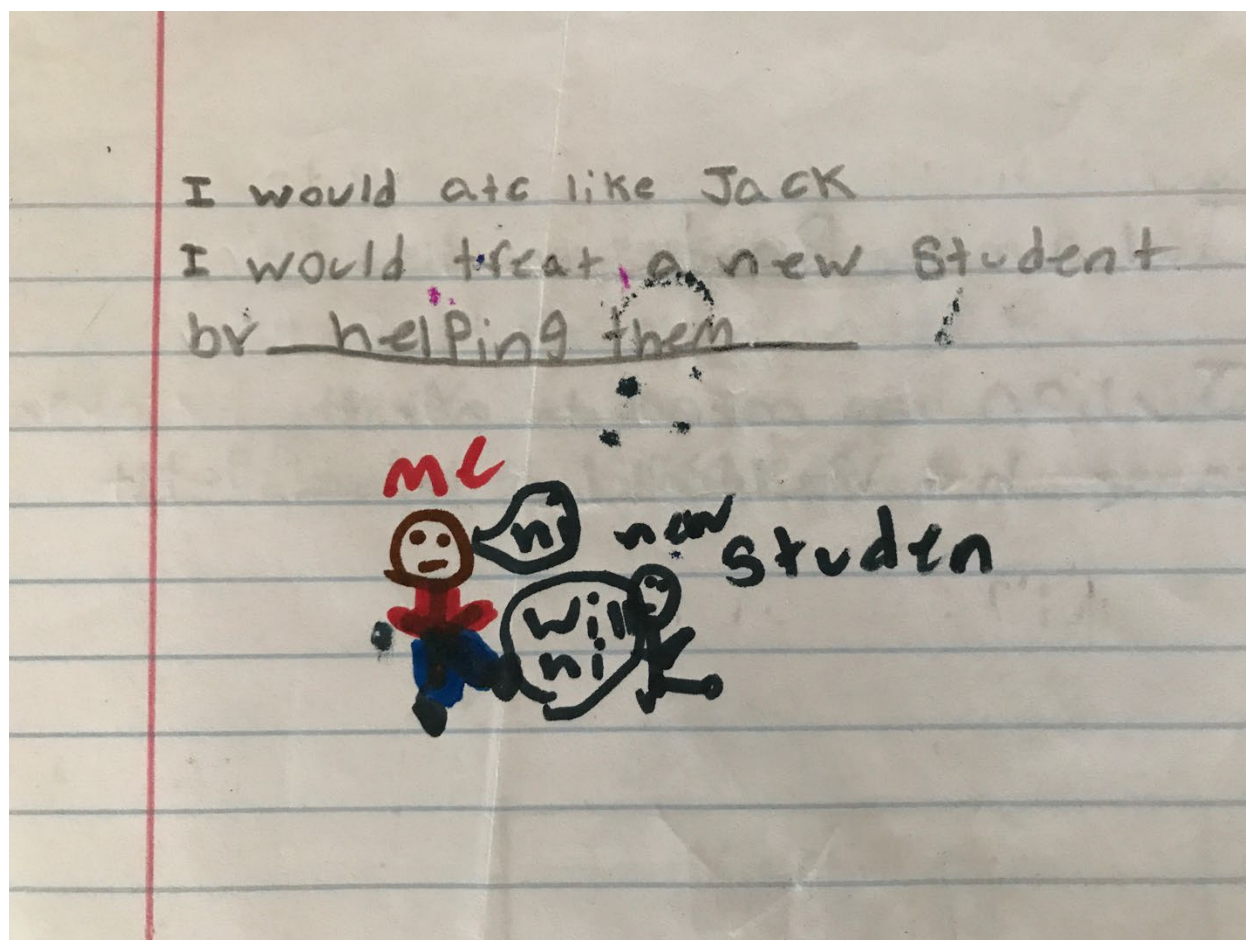 I would atc like Jack
I would treat a new student
by helping them
me
ni
new studen
will
ni